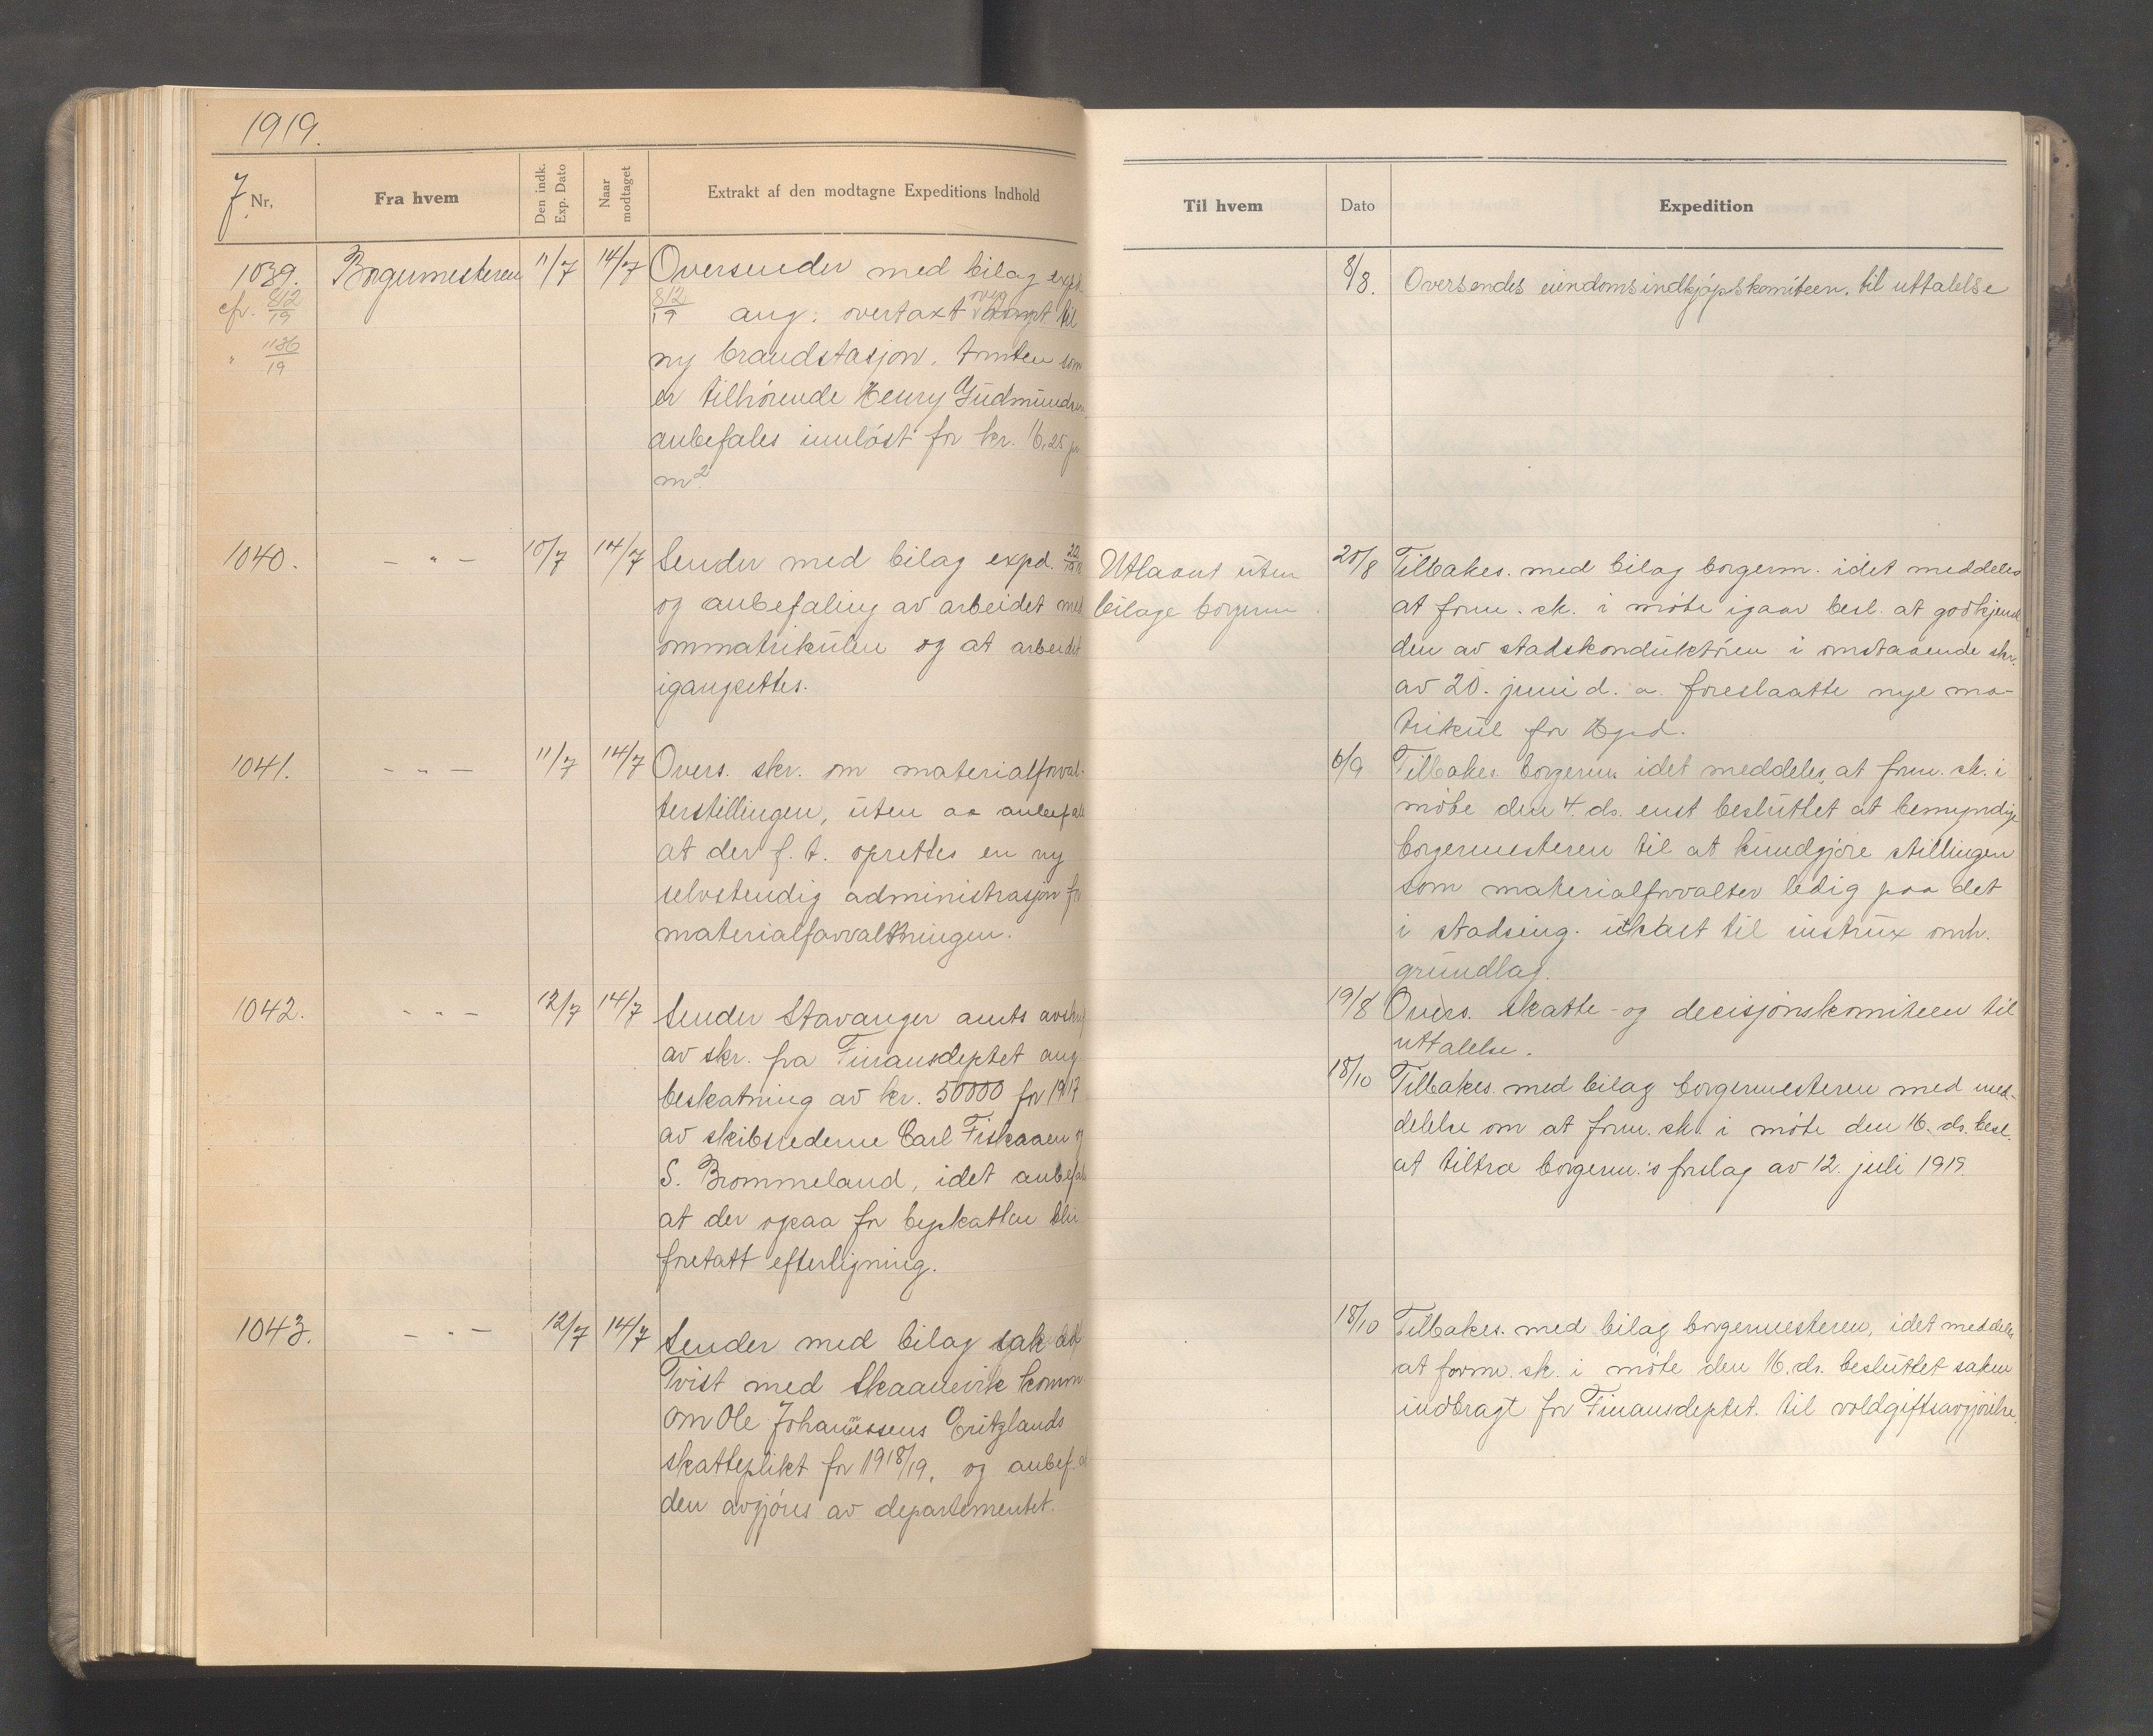 1919.
J. Nr.
Fra hvem
Den indk. Exp. Dato
Naar modtaget
Extrakt af den modtagne Expeditions Indhold
1039.
cfr. 812/19
" 1136/19
Borgermesteren
11/7
14/7
Oversender med bilag expd.
812/19 ang. overtaxt over tomt til
ny brandstasjon. Tomten som
er tilhørende Henry Gudmundsen
anbefales innløst for kr. 16,25 pr
m².
1040.
- " -
10/7
14/7
Sender med bilag expd.
og anbefaling av arbeidet med
ommatrikulen og at arbeidet
igangsettes.
1041.
- " -
11/7
14/7
Overs. skr. om materialforval-
terstillingen, uten aa anbefale
at der f. t. oprettes en ny
selvstendig administrasjon for
materialforvaltningen.
1042.
- " -
12/7
14/7
Sender Stavanger amts avskrift
av skr. fra Finansdeptet ang.
beskatning av kr. 50000 for 1917
av skibsrederne Carl Fiskaaen og
S. Brommeland, idet anbefales
at der ogsaa for byskatten blir
foretatt efterligning.
1043.
- " -
12/7
14/7
Sender med bilag sak
Tvist med Skaanevik komm.
om Ole Johannessens Eritzlands
skatteplikt for 1918/19, og anbef. at
den avgjøres av departementet.
Til hvem
Dato
Expedition
8/8.
Oversendes eiendomsindkjøpskomiteen. til uttalelse
Utlaant uten
bilage borgerm.
20/8
Tilbakes. med bilag borgerm. idet meddeles
at form. sk. i møte igaar besl. at godkjende
den av stadskonduktøren i omstaaende skr.
av 20. juni d. a. foreslaatte nye ma-
trikul for Hgsd.
6/9
Tilbakes. borgerm. idet meddeles, at form. sk. i
møte den 4. ds. enst besluttet at bemyndige
borgermesteren til at kundgjøre stillingen
som materialforvalter ledig paa det
i stadsing. utkast til instrux omh.
grundlag.
19/8
Overs. skatte- og decisjonskomiteen til
uttalelse.
18/10
Tilbakes. med bilag borgermesteren med med-
delelse om at form. sk. i møte den 16. ds. besl.
at tiltra borgerm.'s forslag av 12. juli 1919.
18/10
Tilbakes. med bilag borgermesteren, idet meddeles
at form. sk. i møte den 16. ds. besluttet saken
indbragt for Finansdeptet. til voldgiftsavgjørelse.